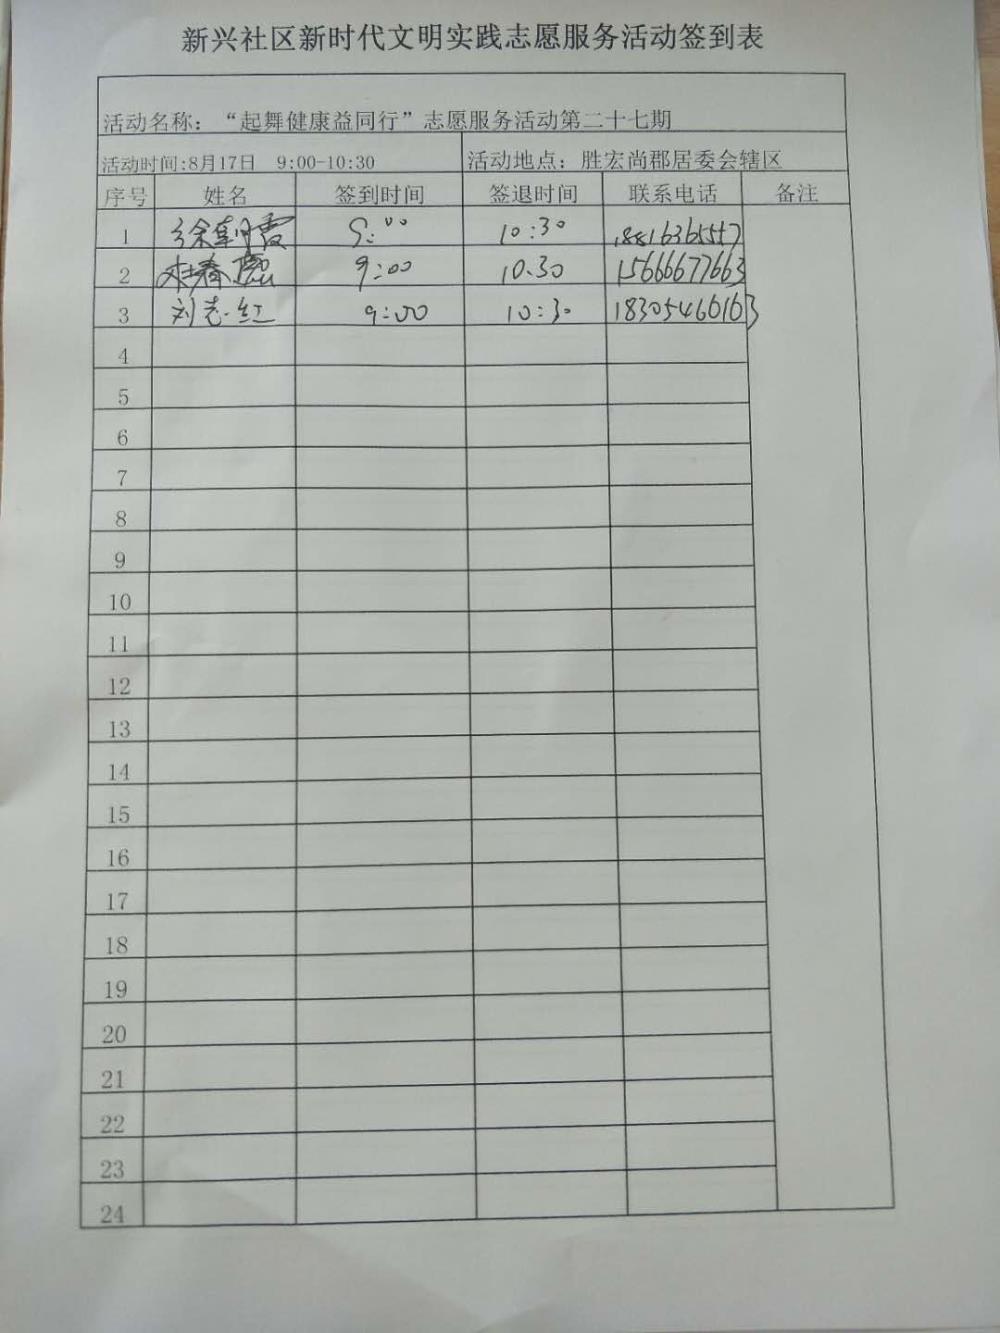 新兴社区新时代文明实践志愿服务活动签到表
活动名称：“起舞健康益同行”志愿服务活动第二十七期
活动时间:8月17日 9:00-10:30 活动地点：胜宏尚郡居委会辖区
序号 姓名 签到时间 签退时间 联系电话 备注
1 徐朝霞 9:00 10:30 18816365557
2 春 9:00 10.30 15666677663
3 刘志红 9:00 10:30 18305460163
4
5
6
7
8
9
10
11
12
13
14
15
16
17
18
19
20
21
22
23
24